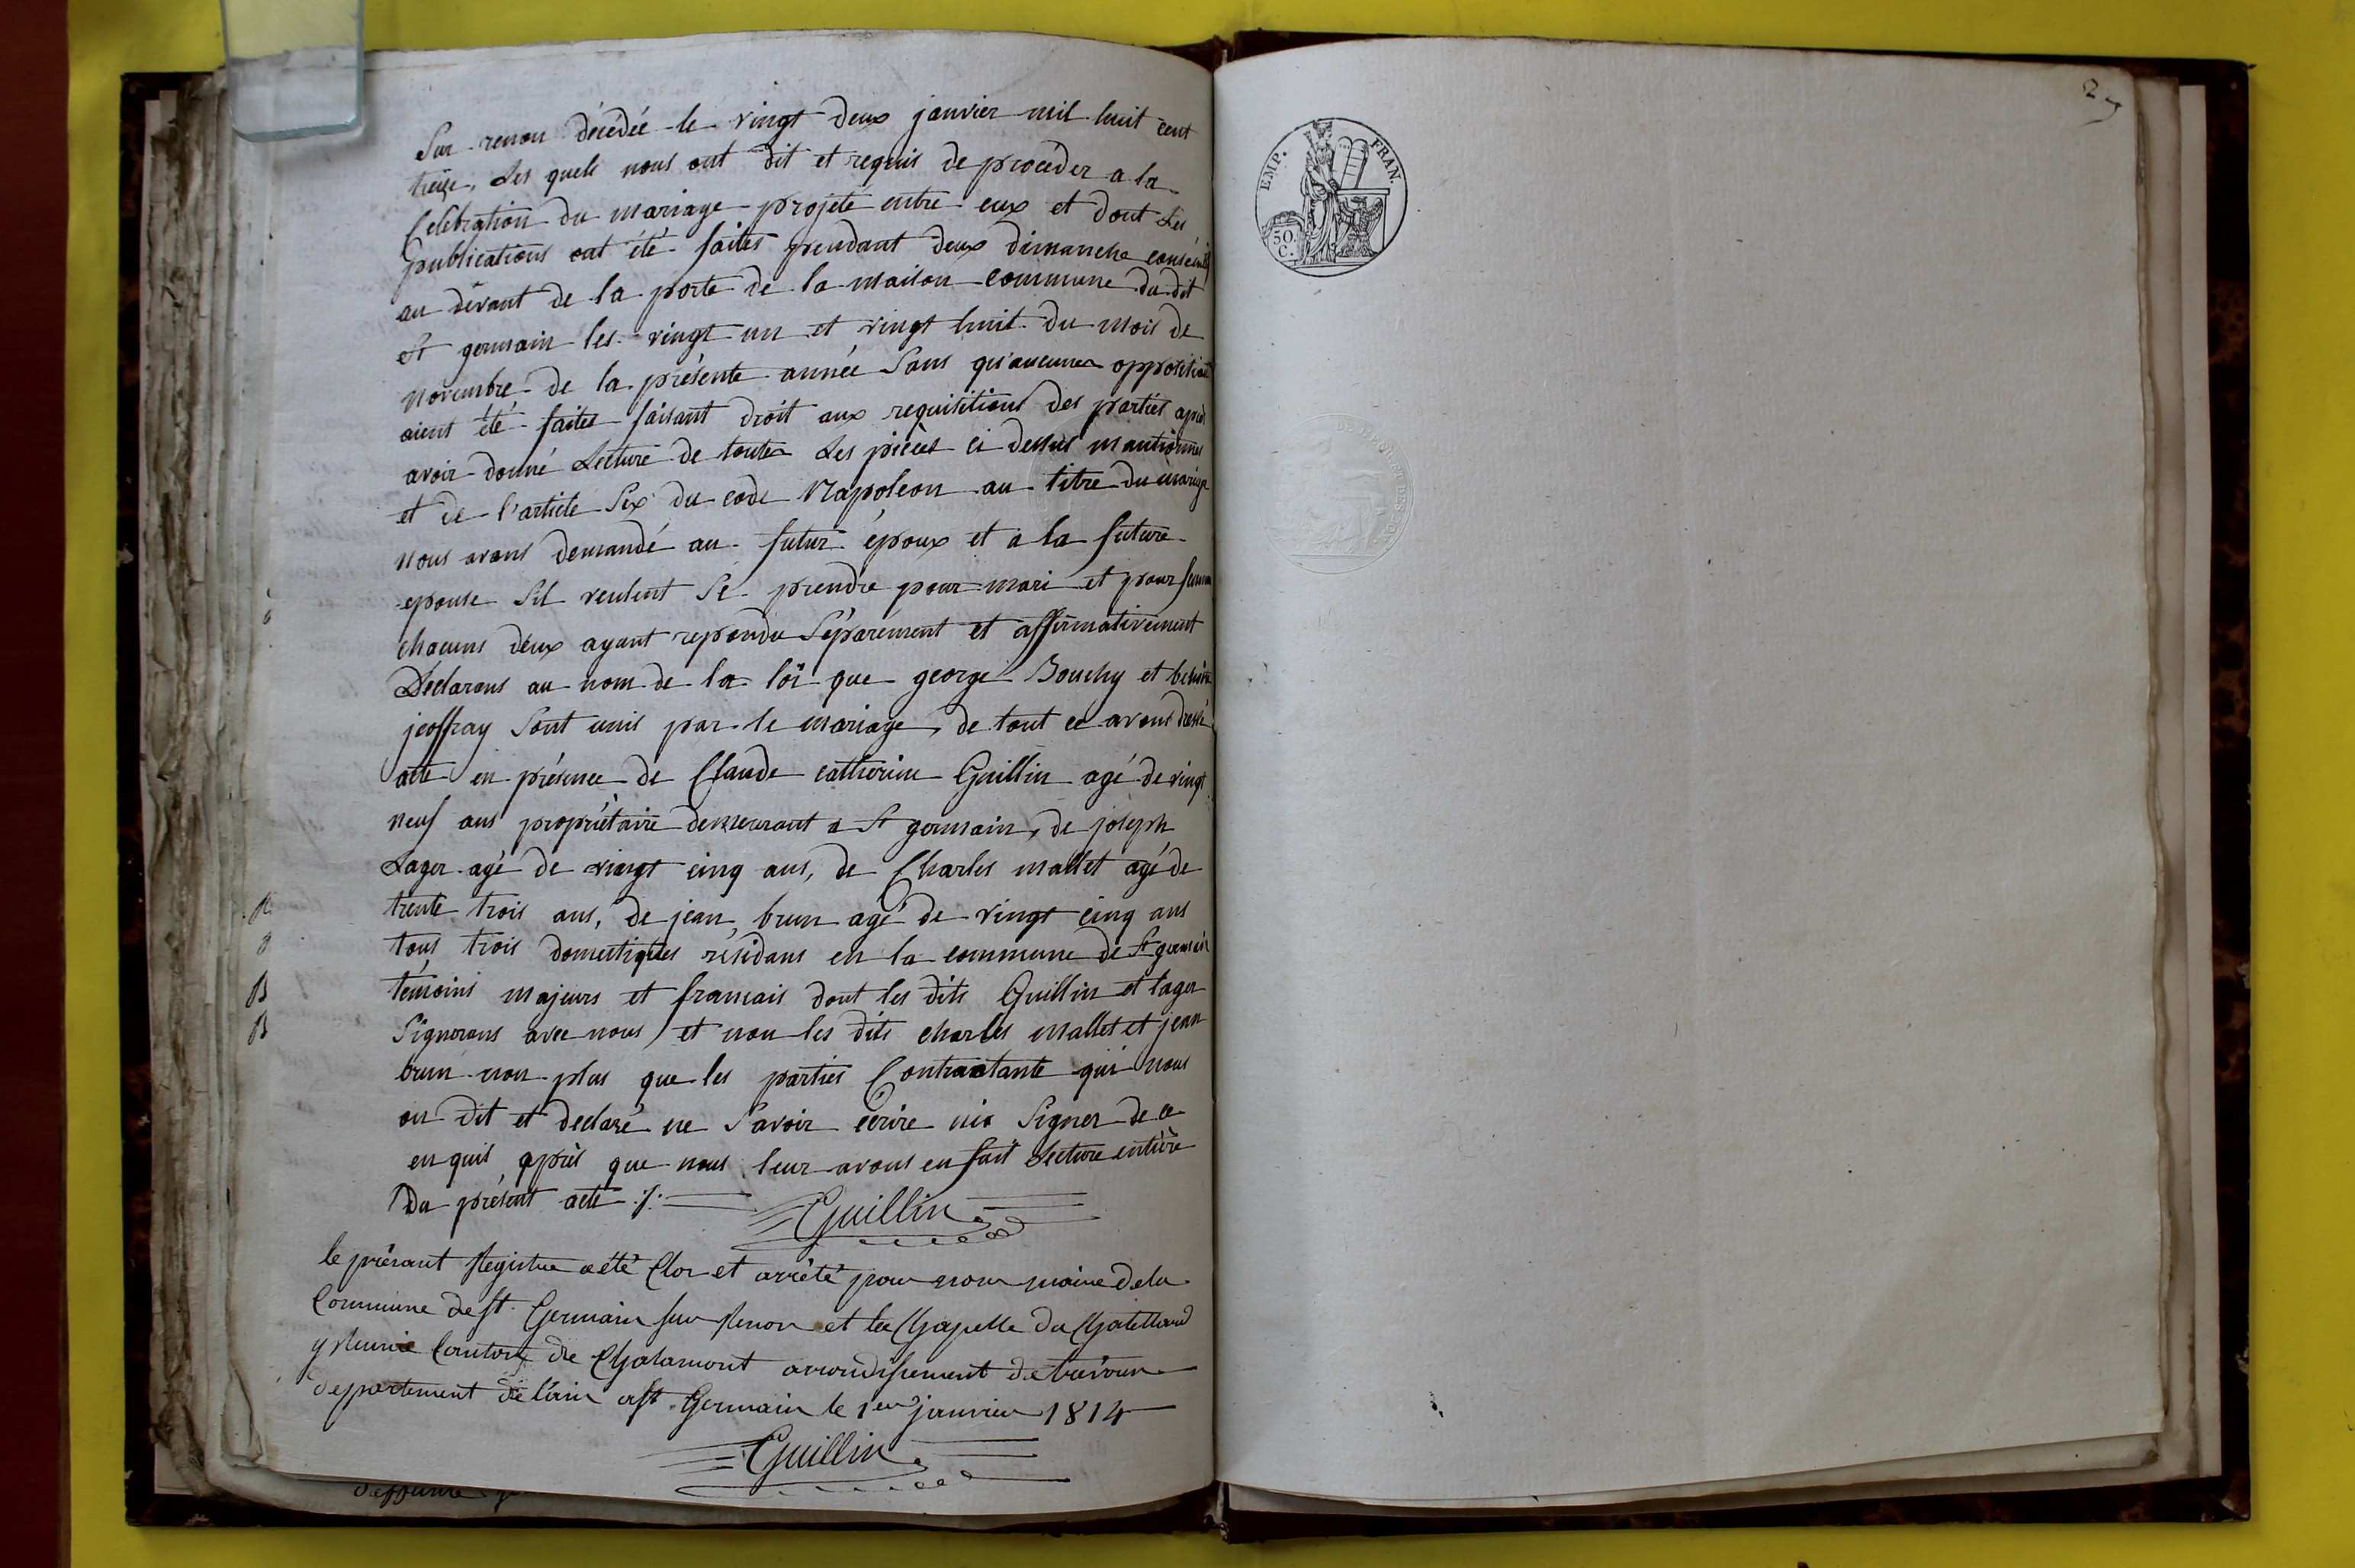 Sur renon décédée le vingt deux janvier mil huit cent
treize, Les quels nous ont dit et requis de procéder a la
Celebration du mariage projeté entre eux et dont Les
publications ont été faites pendant deux dimanche consécutifs
au devant de la porte de la maison commune du dit
St germain les vingt un et vingt huit du mois de
novembre de la présente année Sans qu'aucunes opposition
aient été faites faisant droit aux requisitions des parties après
avoir donné Lecture de toutes Les pièces ci dessus mantionnes
et de l'article Six du code Napoléon au titre du mariage
nous avons demandé au futur époux et a la future
epouse Sil veulent Se prendre pour mari et pour femme
chacuns deux ayant repondu Séparément et affirmativement
Déclarons au nom de la loi que george Bouchy et
jeoffray Sont unis par le mariage, de tout ce avons dressé
acte en présence de Claude catherin Guillin agé de vingt
neuf ans propriétaire demeurant a St germain, de joseph
Lager agé de vingt cinq ans, de Charles mallet agé de
trente trois ans, de jean brun agé de vingt cinq ans
tous trois domestiques résidans en la commune de St germain
témoins majeurs et francais dont les dits Guillin et lager
Signerons avec nous et non les dits charles mallet et jean
brun non plus que les parties Contractante qui nous
on dit et declaré ne Savoir écrire nie Signer de ce
enquis après que nous leur avons en fait Lecture entière
Du présent acte ./.
Guillin
le présant Registre a été Clos et arrêté par nous maire de la
Commune de St. Germain sur Renon et la Chapelle du Chatellard
y Reunie Canton de Chalamont arrondissement de trévoux
departement de l'ain a St. Germain le 1er janvier 1814
Guillin
EMP. FRAN.
50.
C.